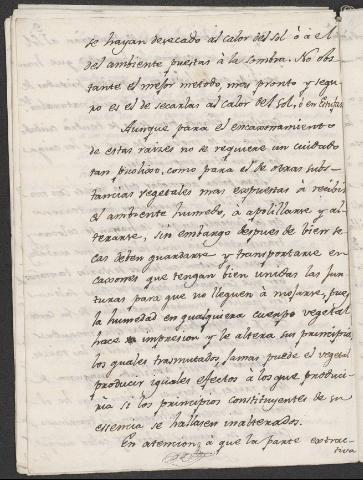 se hayan desecado al calor del sol ò à el
del ambiente puestas à la sombra. No obs-
tante el mejor metodo, mas pronto y segu-
ro es el de secarlas al calor del Sol, ò en Estufas.
Aunque para el encaxonamiento
de estas raizes no se requiere un cuidado
tan prolixo, como para el de otras subs-
tancias vegetales mas expuestas à recibir
el ambiente humedo, à apolillarse y al-
terarse, sin embargo despues de bien se-
cas deben guardarse y transportarse en
caxones que tengan bien unidas las jun-
turas para que no lleguen à mojarse, pues
la humedad en qualquiera cuerpo vegetal
hace impresion y le altera sus principios,
los quales trasmutados, jamas puede el vegetal
producir iguales efectos à los que produci-
ria si los principios constituyentes de su
essencia se hallasen inalterados.
En atencion à que la parte extrac-
tiva